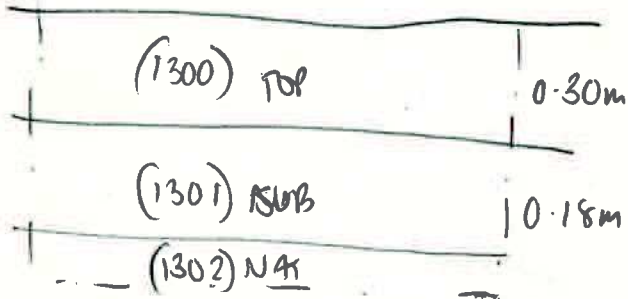 (1300) TOP
0.30m
(1301) SUB
0.18m
(1302) NAT